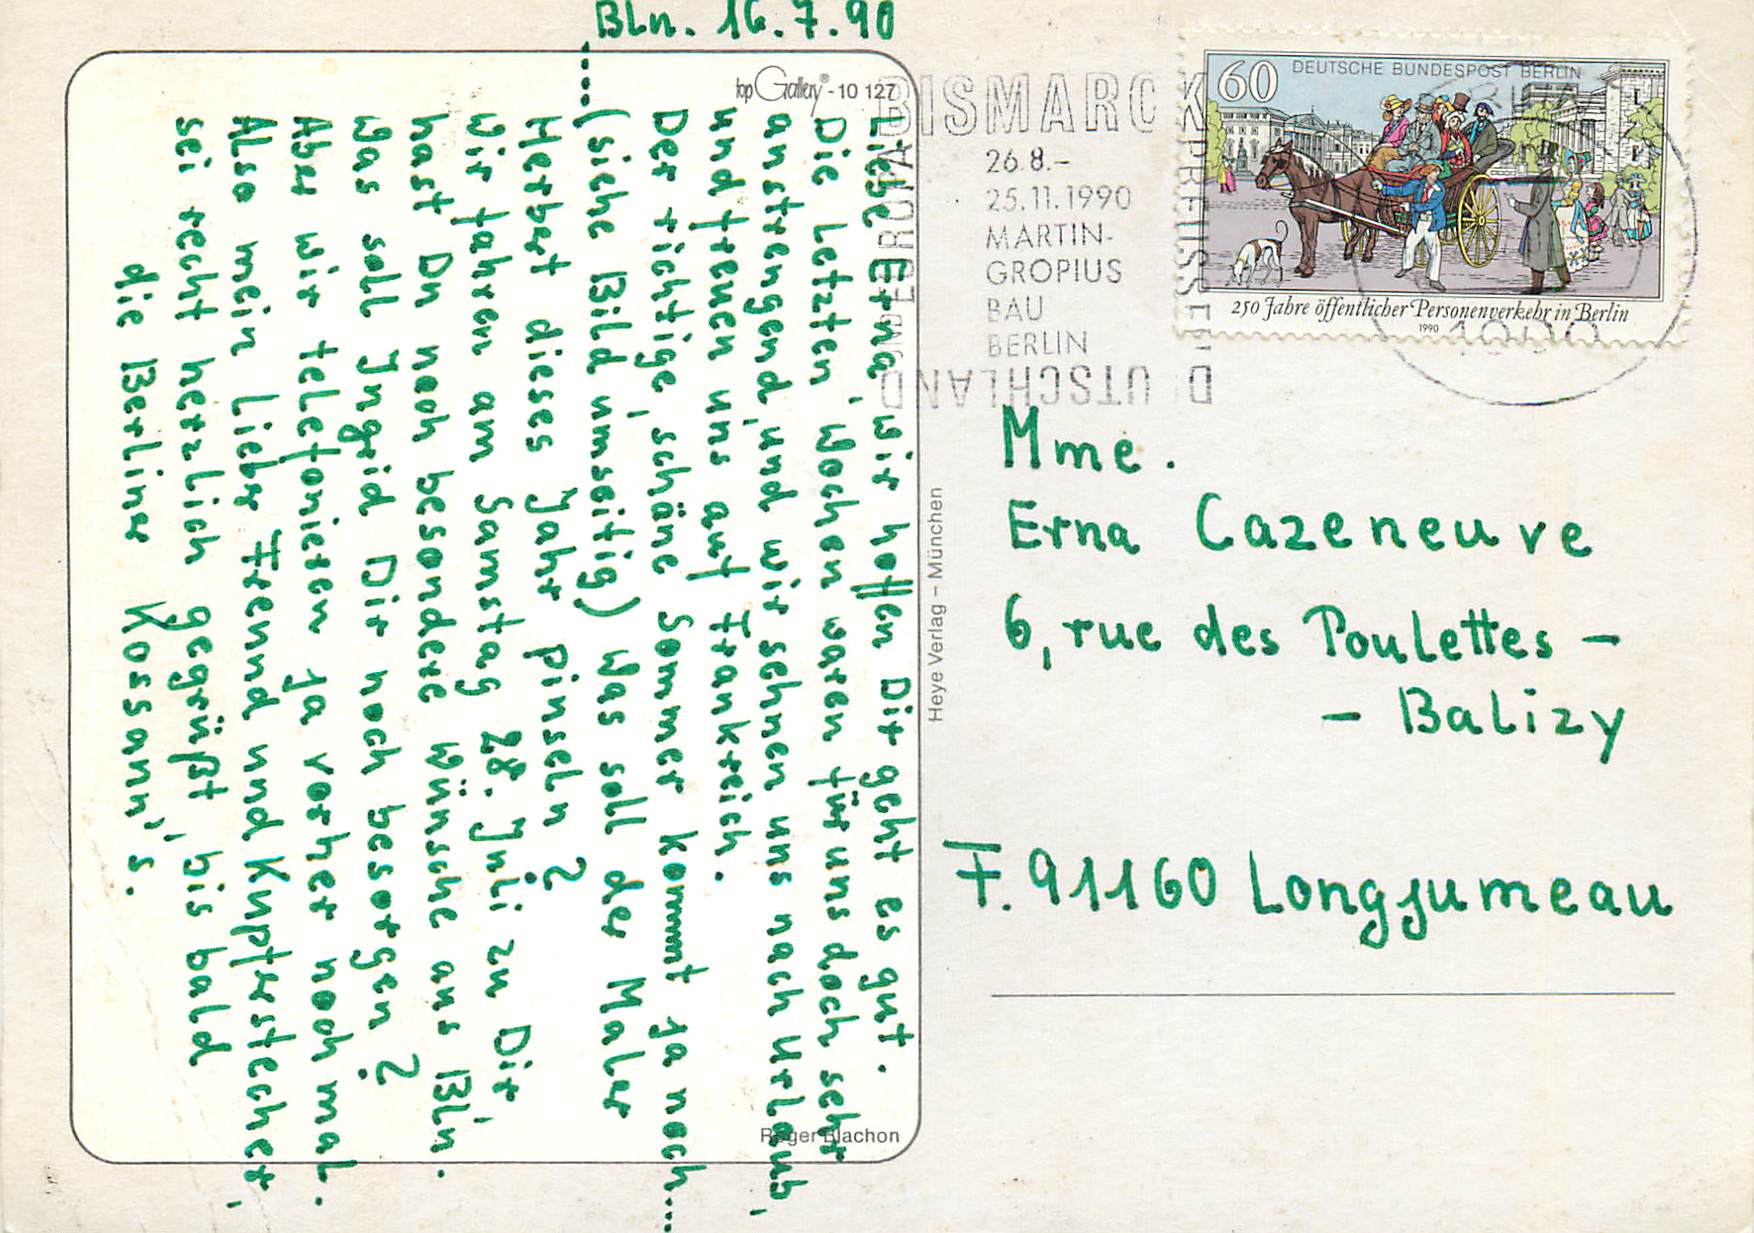 Bln. 16.7.90
top Gallery® - 10 127
Liebe Erna, wir hoffen Dir geht es gut.
Die letzten Wochen waren für uns doch sehr
anstrengend, und wir sehnen uns nach Urlaub,
und freuen uns auf Frankreich.
Der richtige, schöne Sommer kommt ja noch....
....(siehe Bild umseitig) Was soll der Maler
Herbert dieses Jahr pinseln?
Wir fahren am Samstag 28. Juli zu Dir,
hast Du noch besondere Wünsche aus Bln.
Was soll Ingrid Dir noch besorgen?
Aber wir telefonieren ja vorher nochmal.
Also mein lieber Freund und Kupferstecher,
sei recht herzlich gegrüßt, bis bald
die Berliner Kossann's.
Roger Blachon
Heye Verlag – München
BISMARCK
PREUSSEN
DEUTSCHLAND
UND EUROPA
26.8.–
25.11.1990
MARTIN-
GROPIUS
BAU
BERLIN
60 DEUTSCHE BUNDESPOST BERLIN
250 Jahre öffentlicher Personenverkehr in Berlin
1990
Mme.
Erna Cazeneuve
6, rue des Poulettes –
– Balizy
F. 91160 Longjumeau